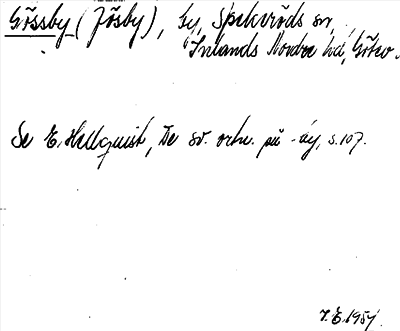 Gössby (Jösby), by, Spekeröds sn,
Inlands Nordre hd, Götev.
Se E. Hellquist, De sv. ortn. på -by, s. 107.
F.E. 1954.